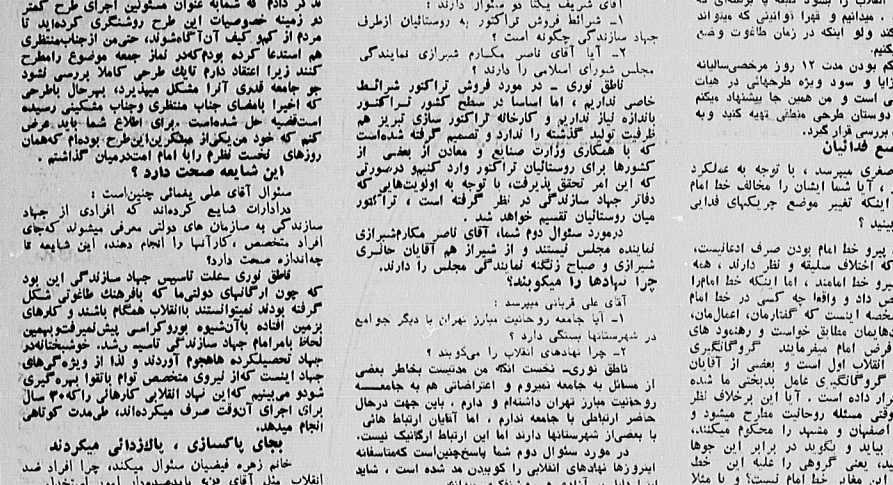 ، میدانیم و قهرا قوانینی که میتواند
کند ولو اینکه در زمان طاغوت وضع
کم بودن مدت ۱۲ روز مرخصی‌سالیانه
مزایا و سود ویژه طرحهائی در هیات
است و من همین جا پیشنهاد میکنم
دوستان طرحی منطقی تهیه کنید وبه
بررسی قرار گیرد.
فدائیان
صفری میپرسد ، با توجه به عملکرد
، آیا شما ایشان را مخالف خط امام
اینکه تغییر موضع چریکهای فدایی
پیرو خط امام بودن صرف ادعانیست،
که اختلاف سلیقه و نظر دارند ، همه
خط امامند ، اما اینکه خط امام‌را
داد و واقعا چه کسی در خط امام
اینست که گفتارمان، اعمالمان،
مطابق خواست و رهنمود های
امام میفرمایند گروگانگیری
انقلاب اول است و بعضی از آقایان
گروگانگیری عامل بدبختی ما شده
قرار داده است . آیا این برخلاف نظر
وقتی مسئله روحانیت مطرح میشود و
اصفهان و مشهد را محکوم میکنند،
بیاید و نگوید در برابر این جوها
یعنی گروهی را علیه این خط
مغایر خط امام نیست؟ و یا مثلا
آقای شریف یکتا دو سئوال دارند :
۱ـ شرائط فروش تراکتور به روستائیان ازطرف
جهاد سازندگی چگونه است ؟
۲ـ آیا آقای ناصر مکارم شیرازی نمایندگی
مجلس شورای اسلامی را دارند ؟
ناطق نوری ـ در مورد فروش تراکتور شرائط
خاصی نداریم ، اما اساسا در سطح کشور تراکتور
باندازه نیاز نداریم و کارخانه تراکتور سازی تبریز هم
ظرفیت تولید گذشته را ندارد و تصمیم گرفته شده‌است
که با همکاری وزارت صنایع و معادن از بعضی از
کشورها برای روستائیان تراکتور وارد کنیم‌و درصورتی
که این امر تحقق پذیرفت، با توجه به اولویت‌هایی که
دفاتر جهاد سازندگی در نظر گرفته است ، تراکتور
میان روستائیان تقسیم خواهد شد .
درمورد سئوال دوم شما، آقای ناصر مکارم‌شیرازی
نماینده مجلس نیستند و از شیراز هم آقایان حائری
شیرازی و صباح زنگنه نمایندگی مجلس را دارند.
چرا نهادها را میکوبند؟
آقای علی قربانی میپرسد :
۱ـ آیا جامعه روحانیت مبارز تهران با دیگر جوامع
در شهرستانها بستگی دارد ؟
۲ـ چرا نهادهای انقلاب را می‌کوبند ؟
ناطق نوری‌ـ نخست آنکه من مدتیست بخاطر بعضی
از مسائل به جامعه نمیروم و اعتراضاتی هم به جامعـه
روحانیت مبارز تهران داشته‌ام و دارم ، باین جهت درحال
حاضر ارتباطی با جامعه ندارم ، اما آقایان ارتباط هائی
با بعضی‌از شهرستانها دارند اما این ارتباط ارگانیک نیست.
در مورد سئوال دوم شما پاسخ‌چنین‌است که‌متاسفانه
اینروزها نهادهای انقلابی را کوبیدن مد شده است ، شاید
تذکر دادم که شمابه عنوان مسئولین اجرای طرح کمتر
در زمینه خصوصیات این طرح روشنگری کرده‌اید تا
مردم از کم‌و کیف آن آگاه‌شوند، حتی‌من ازجناب‌منتظری
هم استدعا کرده بودم‌که‌در نماز جمعه موضوع رامطرح
کنند زیرا اعتقاد دارم تایک طرحی کاملا بررسی نشود
جو جامعه قدری آنرا مشکل میپذیرد، بهرحال باطرحی
که اخیرا بامضای جناب منتظری وجناب مشکینی رسیده
است‌قضیه حل شده‌است .برای اطلاع شما باید عرض
کنم که خود من‌یکی‌از مبتکرین‌این‌طرح بوده‌ام که‌همان
روزهای نخست نظرم رابا امام امت‌درمیان گذاشتم .
این شایعه صحت دارد ؟
سئوال آقای علی یغمائی چنین‌است :
درادارات شایع کرده‌اند که افرادی از جهاد
سازندگی به سازمان های دولتی معرفی میشوند که‌جای
افراد متخصص ،کارآنها را انجام دهند، این شایعه تا
چه‌اندازه صحت دارد؟
ناطق نوری ـ علت تاسیس جهاد سازندگی این بود
که چون ارگانهای دولتی‌ما که بافرهنگ طاغوتی شکل
گرفته بودند نمیتوانستند باانقلاب همگام باشند و کارهای
بزمین افتاده باآن‌شیوه بوروکراسی پیش‌نمیرفت‌وبهمین
لحاظ بامرامام جهاد سازندگی تاسیس‌شد. خوشبختانه‌در
جهاد تحصیلکرده هاهجوم آوردند و لذا از ویژه‌گی‌های
جهاد اینست که‌از نیروی متخصص توام باتقوا بهره‌گیری
شودو می‌بینیم که‌این نهاد انقلابی کارهائی راکه‌۳۰ سال
برای اجرای آن‌وقت صرف میکرده‌اند، طی‌مدت کوتاهی
انجام میدهد.
بجای پاکسازی ، پاک‌زدائی میکردند
خانم زهره فیضیان سئوال میکند، چرا افراد ضد